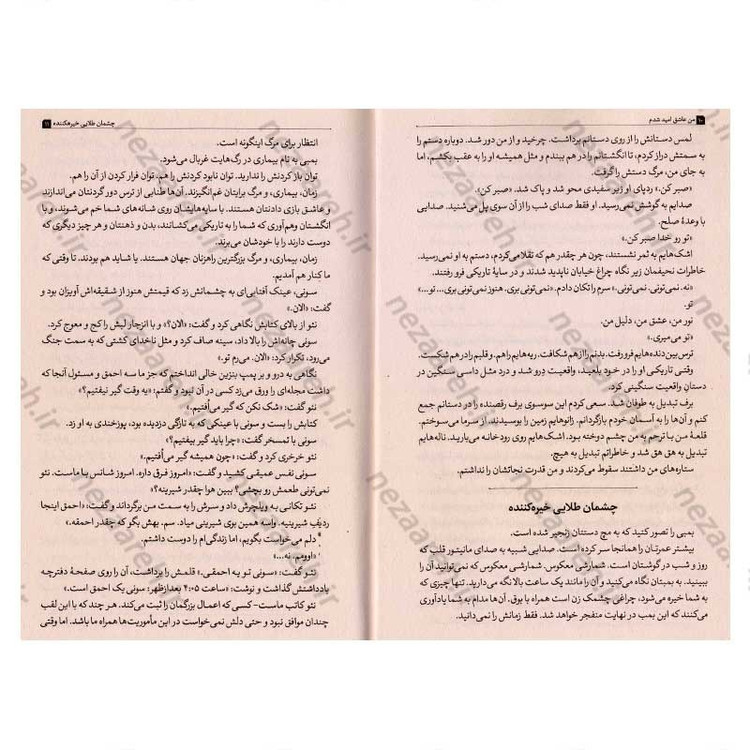 ۱۰ من عاشق امید شدم
لمس دستانش را از روی دستانم برداشت. چرخید و از من دور شد. دوباره دستم را
به سمتش دراز کردم، تا انگشتانم را در هم ببندم و مثل همیشه او را به عقب بکشم، اما
به جای من، مرگ دستش را گرفت.
«صبر کن.» ردپای او زیر سفیدی محو شد و پاک شد. «صبر کن.»
صدایم به گوشش نمی‌رسید. او فقط صدای شب را از آن سوی پل می‌شنید. صدایی
با وعدهٔ صلح.
«تو رو خدا صبر کن.»
اشک‌هایم به ثمر ننشستند، چون هر چقدر هم که تقلا می‌کردم، دستم به او نمی‌رسید.
خاطرات نحیفمان زیر نگاه چراغ خیابان ناپدید شدند و در سایهٔ تاریکی فرو رفتند.
«نه. نمی‌تونی. نمی‌تونی.» سرم را تکان دادم. «نمی‌تونی بری. هنوز نمی‌تونی بری... تو...»
تو.
نور من، عشق من، دلیل من.
«تو می‌میری.»
ترس بین دنده‌هایم فرو رفت. بدنم را از هم شکافت. ریه‌هایم را هم. و قلبم را در هم شکست.
وقتی تاریکی او را در خود بلعید، واقعیت دِرو شد و درد مثل داسی سنگین در
دستانِ واقعیت سنگینی کرد.
برف تبدیل به طوفان شد. سعی کردم این سوسوی برف رقصنده را در دستانم جمع
کنم و آن‌ها را به آسمان خودم بازگردانم. زانوهایم زمین را بوسیدند. از سرما می‌سوختم.
قلعهٔ من با ترحم به من چشم دوخته بود. اشک‌هایم روی رودخانه می‌بارید. ناله‌هایم
تبدیل به هق هق شد و خاطراتم تبدیل به هیچ.
ستاره‌های من داشتند سقوط می‌کردند و من قدرت نجاتشان را نداشتم.
چشمان طلایی خیره‌کننده
بمبی را تصور کنید که به مچ دستتان زنجیر شده است.
بیشتر عمرتان را همانجا سر کرده است. صدایی شبیه به صدای مانیتور قلب که
روز و شب در گوشتان است. شمارشی معکوس. شمارشی معکوس که نمی‌توانید آن را
ببینید. به بمبتان نگاه می‌کنید و آن را مانند یک ساعت بالا نگه می‌دارید. تنها چیزی که
به شما خیره می‌شود، چراغی چشمک زن است همراه با بوق، آن‌ها مدام به شما یادآوری
می‌کنند که این بمب در نهایت منفجر خواهد شد. فقط زمانش را نمی‌دانید.
چشمان طلایی خیره‌کننده ۱۱
انتظار برای مرگ اینگونه است.
بمبی به نام بیماری در رگ‌هایت غربال می‌شود.
توان باز کردنش را ندارید. توان نابود کردنش را هم. توان فرار کردن از آن را هم.
زمان، بیماری، و مرگ برایتان غم‌انگیزند. آن‌ها طنابی از ترس دور گردنتان می‌اندازند
و عاشق بازی دادنتان هستند. با سایه‌هایشان روی شانه‌های شما خم می‌شوند، و با
انگشتان وهم‌آوری که شما را به تاریکی می‌کشانند، بدن و ذهنتان و هر چیز دیگری که
دوست دارند را با خودشان می‌برند.
زمان، بیماری، و مرگ بزرگترین راهزنان جهان هستند. یا شاید هم بودند. تا وقتی که
ما کنار هم آمدیم.
سونی، عینک آفتابی‌ای به چشمانش زد که قیمتش هنوز از شقیقه‌اش آویزان بود و
گفت: «الان.»
نئو از بالای کتابش نگاهی کرد و گفت: «الان؟» و با انزجار لبش را کج و معوج کرد.
سونی چانه‌اش را بالا داد، سینه صاف کرد و مثل ناخدای کشتی که به سمت جنگ
می‌رود، تکرار کرد: «الان. می‌رم تو.»
نگاهی به درو و بر پمپ بنزین خالی انداختم که جز ما سه احمق و مسئول آنجا که
داشت مجله‌ای را ورق می‌زد کسی در آن نبود و گفتم: «یه وقت گیر نیفتیم؟»
نئو گفت: «شک نکن که گیر می‌اُفتیم.»
کتابش را بست و سونی با عینکی که به تازگی دزدیده بود، پوزخندی به او زد.
سونی با تمسخر گفت: «چرا باید گیر بیفتیم؟»
نئو خرخری کرد و گفت: «چون همیشه گیر می‌اُفتیم.»
سونی نفس عمیقی کشید و گفت: «امروز فرق داره. امروز شانس با ماست. نئو
نمی‌تونی طعمش رو بچشی؟ ببین هوا چقدر شیرینه؟»
نئو تکانی به ویلچرش داد و سرش را به سمت من برگرداند و گفت: «احمق اینجا
ردیف شیرینیه. واسه همین بوی شیرینی میاد. سم. بهش بگو که چقدر احمقه.»
دلم می‌خواست بگویم، اما زندگی‌ام را دوست داشتم.
«اوووم. نه...»
نئو گفت: «سونی تو یه احمقی.» قلمش را برداشت، آن را روی صفحهٔ دفترچه
یادداشتش گذاشت و نوشت: «ساعت ۴:۰۵ بعدازظهر: سونی یک احمق است.»
نئو کاتب ماست- کسی که اعمال بزرگمان را ثبت می‌کند. هر چند که با این لقب
چندان موافق نبود و حتی دلش نمی‌خواست در این مأموریت‌ها همراه ما باشد. اما وقتی
nezaareh.ir